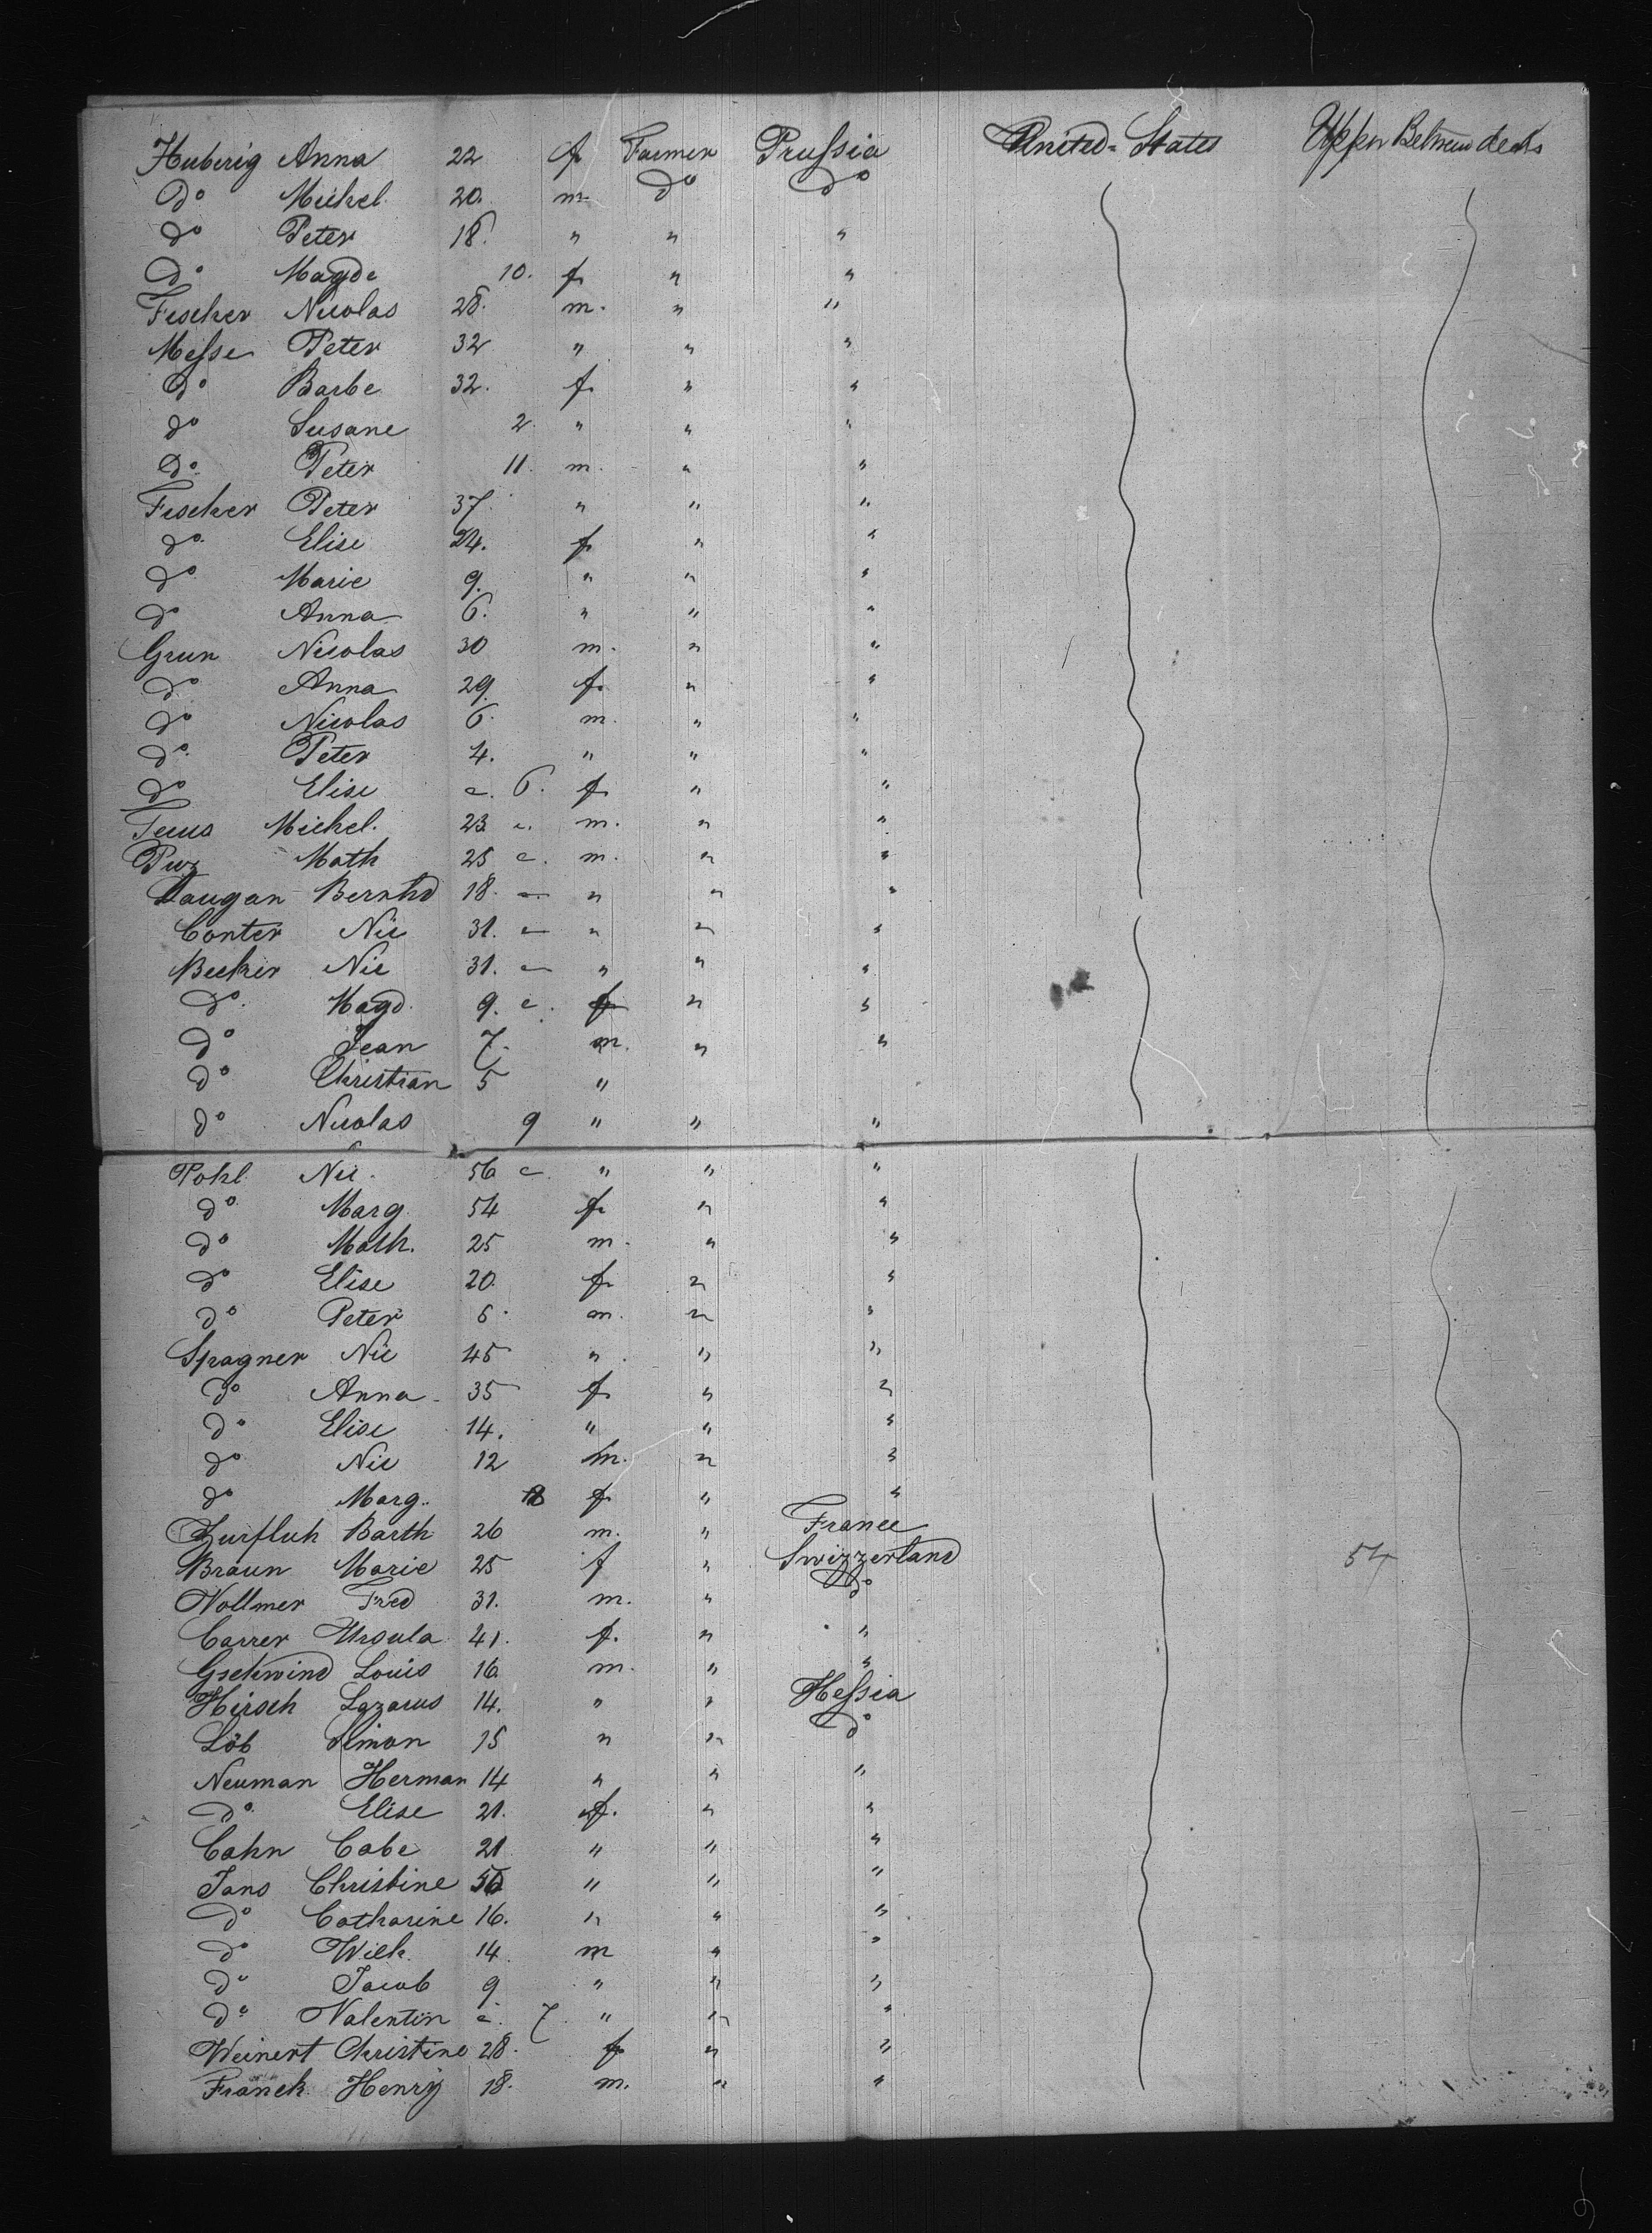 Huberig Anna 22 f Farmer Prussia United States Upper Between decks
do Michel 20. m do do
do Peter 18. " " "
do Magde 10. f " "
Fischer Nicolas 28. m. " "
Messe Peter 32 " " "
do Barbe 32. f. " "
do Susane 2. " " "
do. Peter 11. m. " "
Fischer Peter 37. " " "
do. Elise 24. f " "
do Marie 9. " " "
do Anna 6. " " "
Grun Nicolas 30 m. " "
do Anna 29. f. " "
do Nicolas 6. m. " "
do. Peter 4. " " "
do Elise 6. f. " "
Michel. 23 m. " "
Math 25 m. " "
Daugan Bernhd 18. " " "
Conter Nic 31. " " "
Becker Nic 31. " " "
do. Magd. 9. f " "
do Jean 7. m. " "
do Christian 5 "
do Nicolas 9 " " "
Pohl Nic. 56 " " "
do Marg. 54 f " "
do Math. 25 m. " "
do Elise 20. f " "
do Peter 6. m. " "
Spagner Nic 45 " " "
do Anna 35 f. " "
do Elise 14. " " "
do Nic 12 m. " "
do Marg. f " "
Zurfluh Barth 26 m. " France
Braun Marie 25 f " Swizzerland 54
Vollmer Fred 31. m. " do
Carrer Ursula 41. f. " "
Gschwind Louis 16 m. " "
Hirsch Lazarus 14. " " Hessia
Löb Simon 15 " " do
Neuman Herman 14 " " "
do. Elise 21. f. " "
Cahn Babe 21 " " "
Jans Christine " " "
do Catharine 16. " " "
do Wilh. 14 m " "
do Jacob 9 " " "
do Valentin 7. " " "
Weinert Christine 28. f " "
Franck Henry 18. m. " "